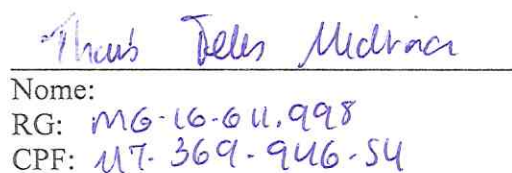 Thaís Teles Medina
Nome:
RG: MG-16-611.998
CPF: 117-369-946-54